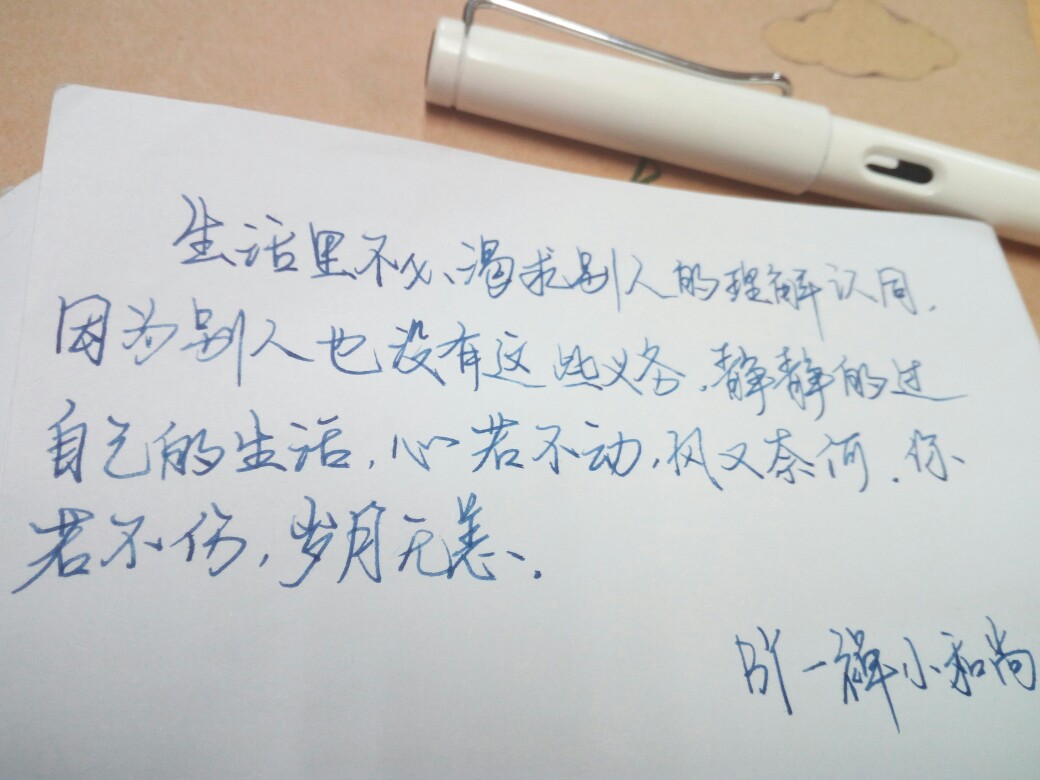 生活里不必渴求别人的理解认同,
因为别人也没有这些义务.静静的过
自己的生活,心若不动,风又奈何.你
若不伤,岁月无恙.
BY一禅小和尚